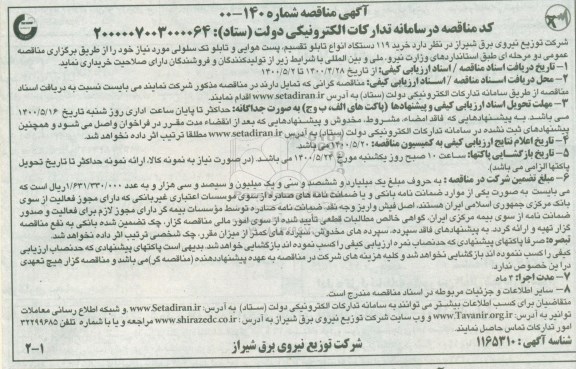 آگهی مناقصه شماره ۱۴۰-۰۰
کد مناقصه در سامانه تدارکات الکترونیکی دولت (ستاد): ۲۰۰۰۰۰۷۰۰۳۰۰۰۰۶۴
شرکت توزیع نیروی برق شیراز در نظر دارد خرید ۱۱۹ دستگاه انواع تابلو تقسیم، پست هوایی و تابلو تک سلولی مورد نیاز خود را از طریق برگزاری مناقصه
عمومی دو مرحله ای طبق استانداردهای وزارت نیرو، ملی و بین المللی با شرایط زیر از تولیدکنندگان و فروشندگان دارای صلاحیت خریداری نماید.
۱- تاریخ دریافت اسناد مناقصه / اسناد ارزیابی کیفی: از تاریخ ۱۴۰۰/۴/۲۸ تا ۱۴۰۰/۵/۲
۲- محل دریافت اسناد مناقصه / اسناد ارزیابی کیفی: مناقصه گرانی که تمایل دارند در مناقصه مذکور شرکت نمایند می بایست نسبت به دریافت اسناد
مناقصه از طریق سامانه تدارکات الکترونیکی دولت (ستاد) به آدرس www.setadiran.ir اقدام نمایند.
۳- مهلت تحویل اسناد ارزیابی کیفی و پیشنهادها (پاکت های الف، ب و ج) به صورت جداگانه: حداکثر تا پایان ساعت اداری روز شنبه تاریخ ۱۴۰۰/۵/۱۶
می باشد. به پیشنهادهایی که فاقد امضاء، مشروط، مخدوش و پیشنهادهایی که بعد از انقضاء مدت مقرر در فراخوان واصل می شود و همچنین
پیشنهادهای ثبت نشده در سامانه تدارکات الکترونیکی دولت (ستاد) به آدرس www.setadiran.ir مطلقا ترتیب اثر داده نخواهد شد.
۴- تاریخ اعلام نتایج ارزیابی کیفی به کمیسیون مناقصه: ۱۴۰۰/۵/۲۰ می باشد.
۵- تاریخ بازگشایی پاکتها: ساعت ۱۰ صبح روز یکشنبه مورخ ۱۴۰۰/۵/۲۴ می باشد. (در صورت نیاز به نمونه کالا، ارائه نمونه حداکثر تا تاریخ تحویل
پاکتها الزامی می باشد).
۶- مبلغ تضمین شرکت در مناقصه: به حروف مبلغ یک میلیارد و ششصد و سی و یک میلیون و سیصد و سی هزار و به عدد ۱/۶۳۱/۳۳۰/۰۰۰ ریال است که
می بایست به صورت یکی از موارد ضمانت نامه بانکی و یا ضمانت نامه های صادره از سوی موسسات اعتباری غیربانکی که دارای مجوز فعالیت از سوی
بانک مرکزی جمهوری اسلامی ایران هستند، اصل فیش واریز وجه نقد، ضمانت نامه صادره توسط مؤسسات بیمه گر دارای مجوز لازم برای فعالیت و صدور
ضمانت نامه از سوی بیمه مرکزی ایران، گواهی خالص مطالبات قطعی تأیید شده از سوی امور مالی مناقصه گزار، چک تضمین شده بانکی به نفع مناقصه
گزار تهیه و ارائه گردد. به پیشنهادهای فاقد سپرده، سپرده های مخدوش، سپرده های کمتر از میزان مقرر، چک شخصی ترتیب اثر داده نخواهد شد.
تبصره: صرفا پاکتهای پیشنهادی که حدنصاب نمره ارزیابی کیفی را کسب نموده اند بازگشایی خواهد شد. بدیهی است پاکتهای پیشنهادی که حدنصاب ارزیابی
کیفی را کسب ننموده اند بازگشایی نخواهد شد و کلیه هزینه های شرکت در مناقصه به عهده پیشنهاددهنده (مناقصه گر) می باشد و مناقصه گزار هیچ تعهدی
در این خصوص ندارد.
۷- مدت اجرا: ۴ ماه
۸- سایر اطلاعات و جزئیات مربوطه در اسناد مناقصه مندرج است.
متقاضیان برای کسب اطلاعات بیشتر می توانند به سامانه تدارکات الکترونیکی دولت (ستاد) به آدرس: www.Setadiran.ir و شبکه اطلاع رسانی معاملات
توانیر به آدرس: www.Tavanir.org.ir و وب سایت شرکت توزیع نیروی برق شیراز به آدرس: www.shirazedc.co.ir مراجعه و یا با شماره تلفن ۳۲۲۹۹۶۸۵
امور تدارکات تماس حاصل نمایند.
شناسه آگهی: ۱۱۶۵۳۱۰
شرکت توزیع نیروی برق شیراز
۲-۱